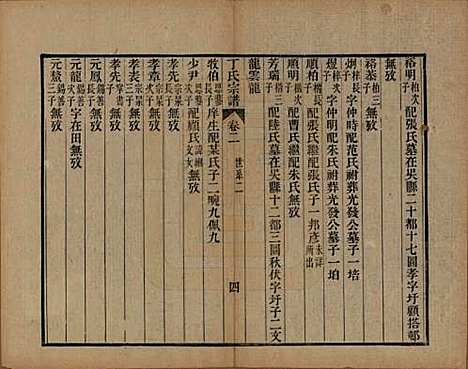 裕明柏次子配張氏墓在吳縣二十都十七圖孝字圩顧搭邨
無攷
裕恭柏三子無攷
炯梓長子字仲時配范氏祔葬光發公墓子一培
煜梓次子字仲明配朱氏祔葬光發公墓子一垍
順柏楩長子配張氏繼配張氏子一邦彥未詳所出
順明楩次子配曹氏繼配朱氏無攷
芳瑞楷子配陸氏墓在吳縣十二都三圖秋伏字圩子二文
龍雲龍
丁氏宗譜 卷二 世系二 四
牧伯恩蓼長子庠生配某氏子二畹九佩九
少尹恩蓼次子配顧氏文女無攷
孝章宗杲子無攷
孝表宗杲次子無攷
孝先子無攷
元鳳錫善長子無攷
元龍錫善次子字在田無攷
元鰲錫善三子無攷